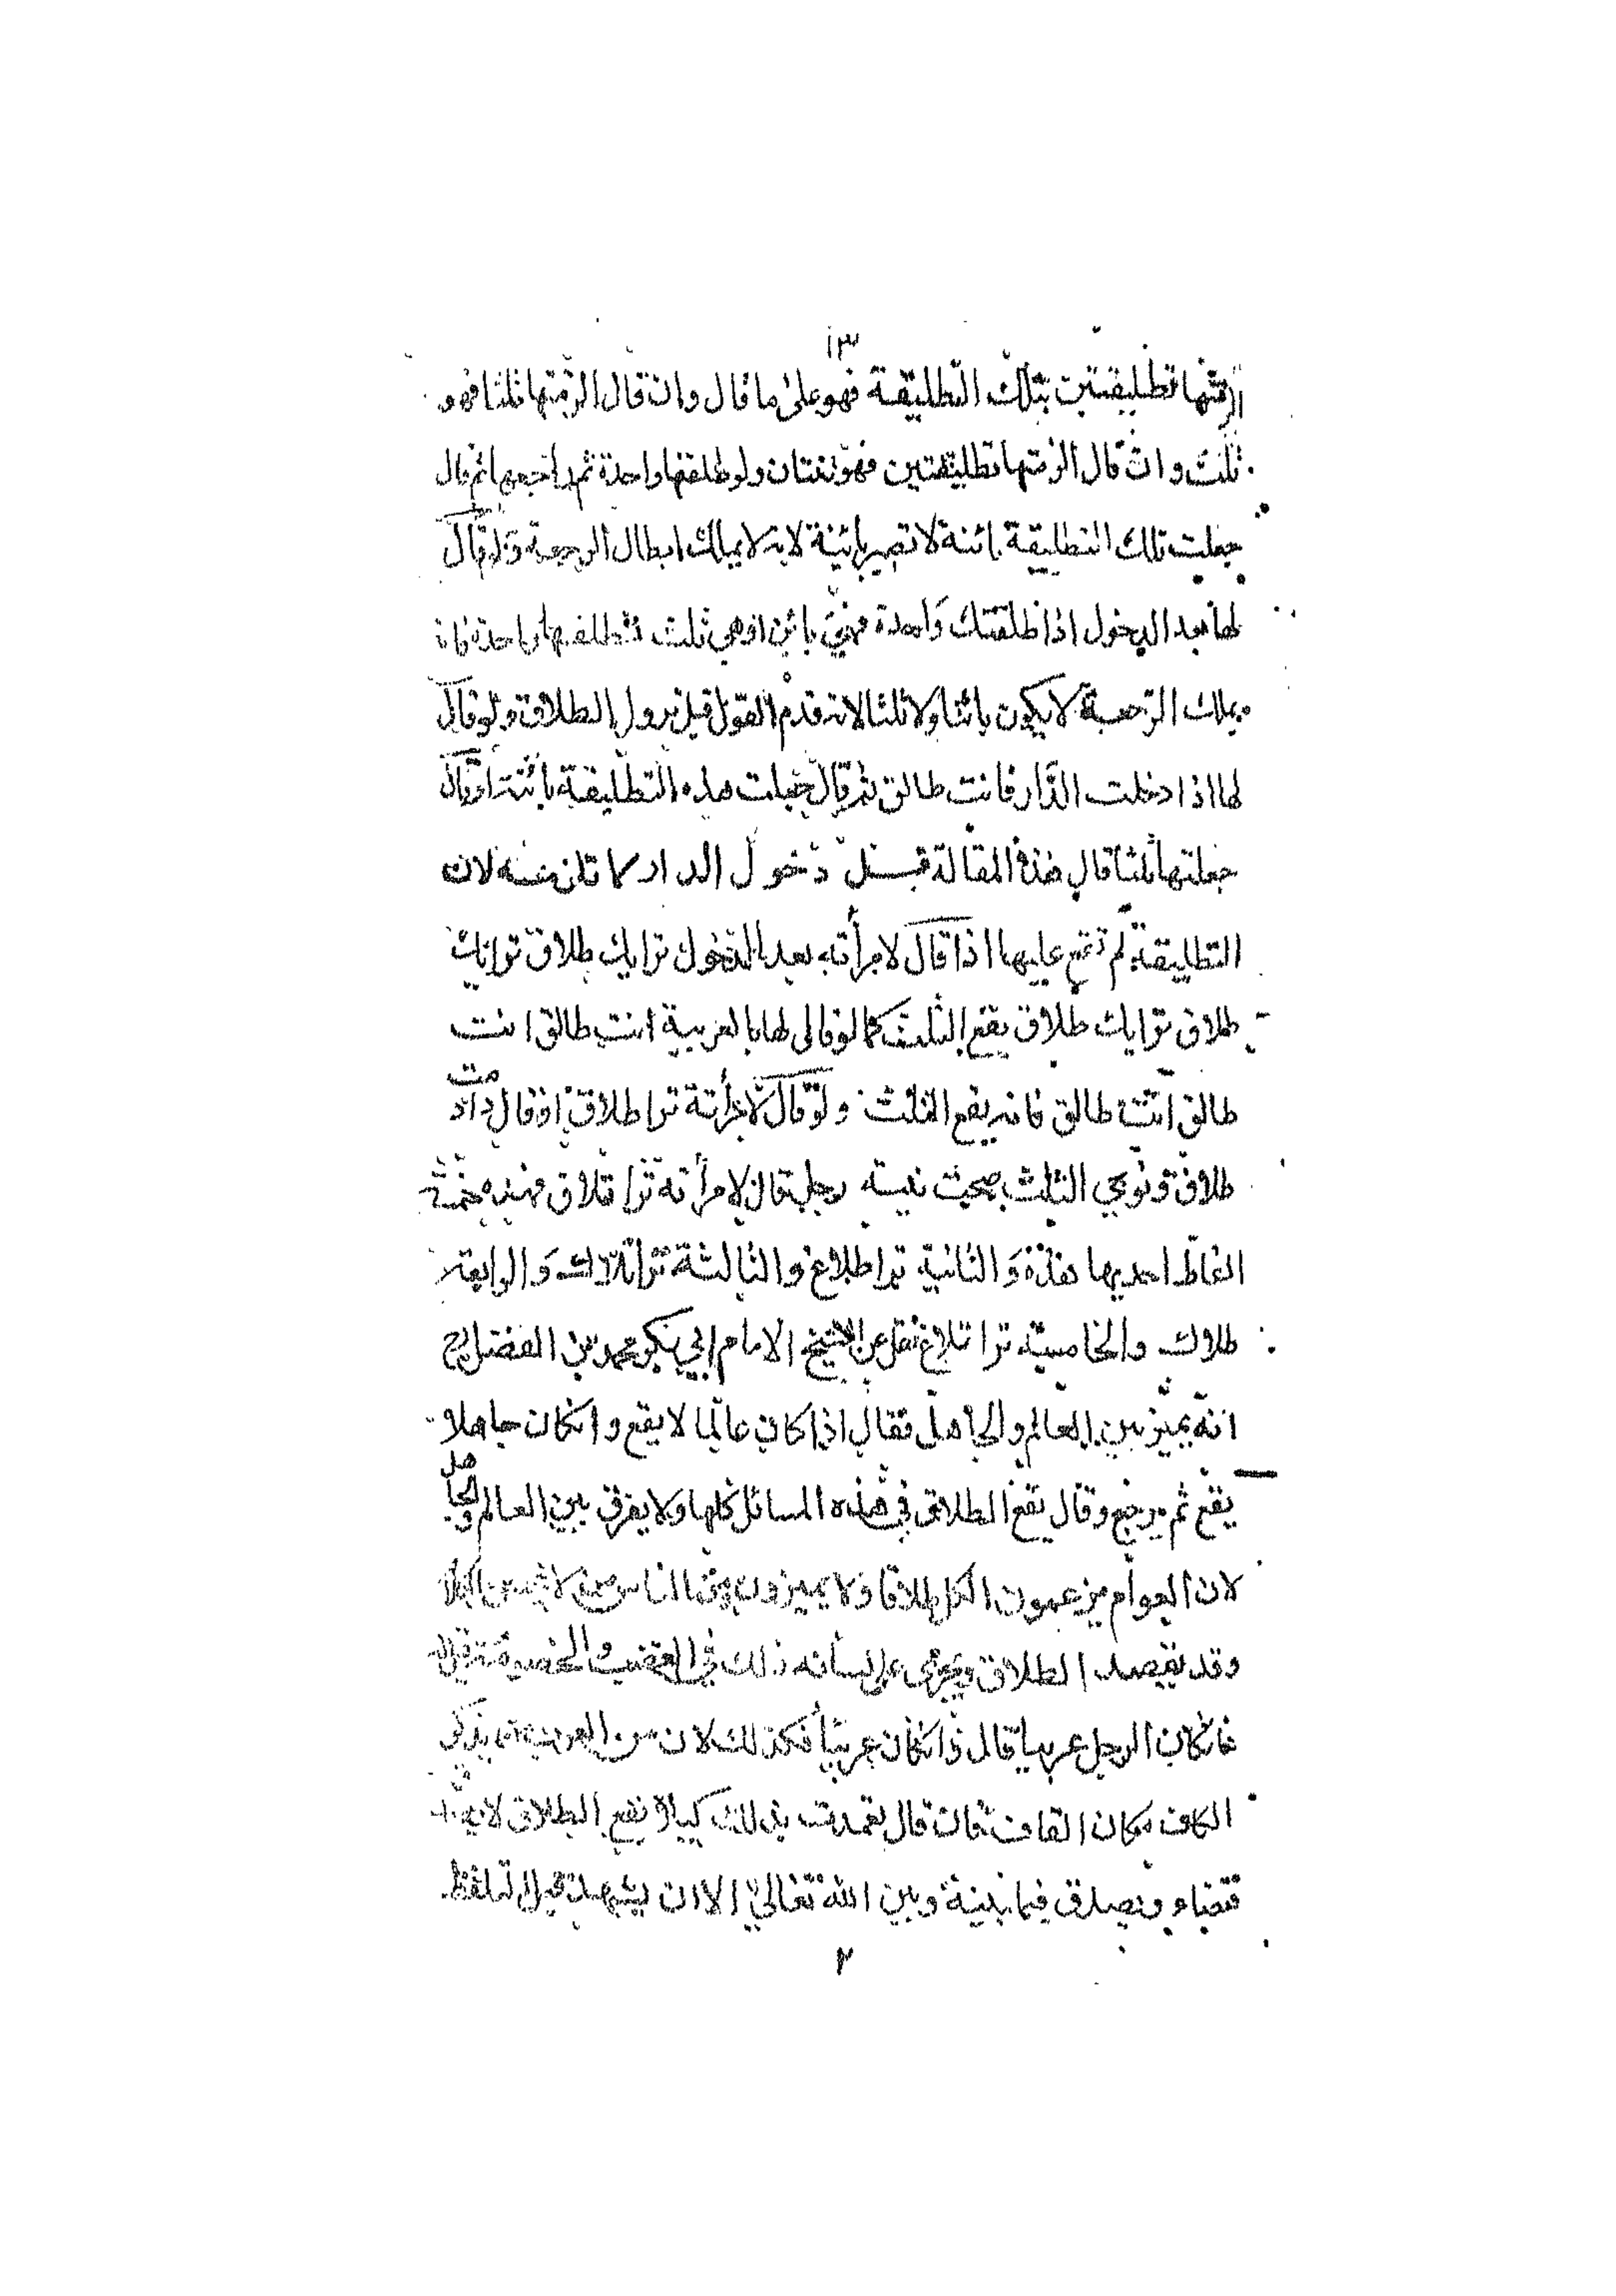 ١٣
الزمتها تطليقتين بتلك التطليقة فهو على ما قال وان قال الزمتها ثلثا فهو
ثلث وان قال الزمتها تطليقتين فهو ثنتان ولو طلقها واحدة ثم راجعها ثم قال
جعلت تلك التطليقة بائنة لا تصير بائنة لانه لا يملك ابطال الرجعة ولو قال
لها بعد الدخول اذا طلقتك واحدة فهي بائن او هي ثلث فطلقها واحدة فانه
يملك الرجعة لا يكون بائنا ولا ثلثا لانه قدم القول قبل نزول الطلاق ولو قال
لها اذا دخلت الدار فانت طالق ثم قال جعلت هذه التطليقة بائنة او قال
جعلتها ثلثا قال هذه المقالة قبل دخول الدار لا تلزمه لان
التطليقة لم تقع عليها اذا قال لامرأته بعد الدخول ترايك طلاق ترايك
طلاق ترايك طلاق يقع الثلث كما لو قال لها بالعربية انت طالق انت
طالق انت طالق فانه يقع الثلث ولو قال لامرأته ترا طلاق او قال دادمت
طلاق ونوى الثلث صحت نيته رجل قال لامرأته ترا تلاق فهذه خمسة
الفاظ احديها هذه والثانية ترا طلاغ والثالثة ترا تلاك والرابعة
طلاك والخامسة ترا تلاغ نقل عن الشيخ الامام ابي بكر محمد بن الفضل رح
انه يميز بين العالم والجاهل فقال اذا كان عالما لا يقع وانكان جاهلا
يقع ثم رجع وقال يقع الطلاق في هذه المسائل كلها ولا يفرق بين العالم والجاهل
لان العوام يزعمون الكل طلاقا ولا يميزون ومن الناس من لا
وقد يقصد الطلاق ويجري على لسانه ذلك في الغضب والخصومة قيل
فانكان الرجل عربيا قال وانكان عربيا فكذلك لان من العرب من يذكر
الكاف مكان القاف فان قال تعمدت بذلك كيلا يقع الطلاق لا
قضاء ويصدق فيما بينه وبين الله تعالى الا ان يشهد قبل التلفظ
٢